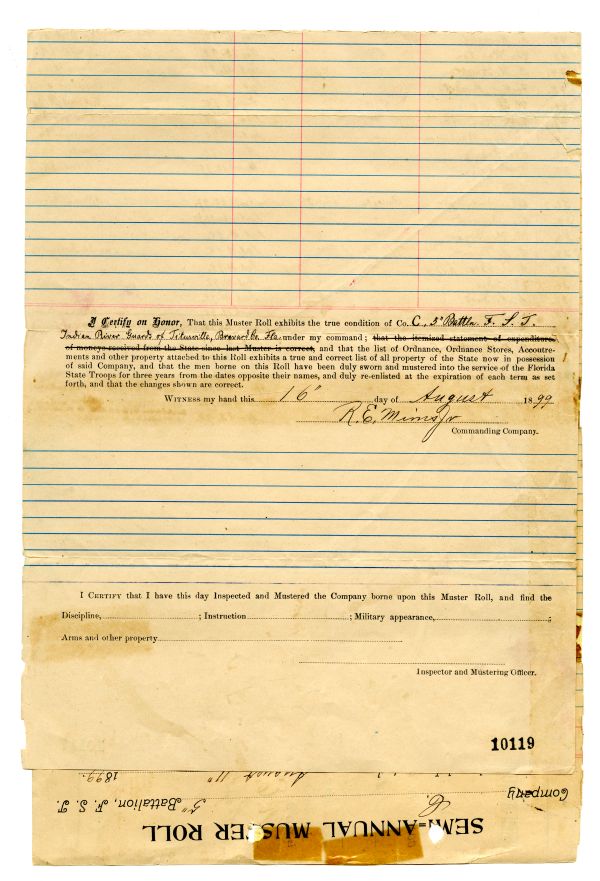 I Certify on Honor, That this Muster Roll exhibits the true condition of Co. C, 5" Battln. F. S. T.
Indian River Guards of Titusville, Brevard Co. Fla. under my command; that the itemized statement of expenditures
of moneys received from the State since last Muster is correct, and that the list of Ordnance, Ordnance Stores, Accoutre-
ments and other property attached to this Roll exhibits a true and correct list of all property of the State now in possession
of said Company, and that the men borne on this Roll have been duly sworn and mustered into the service of the Florida
State Troops for three years from the dates opposite their names, and duly re-enlisted at the expiration of each term as set
forth, and that the changes shown are correct.
WITNESS my hand this 16" day of August 1899
R. E. Mims Jr
Commanding Company.
I CERTIFY that I have this day Inspected and Mustered the Company borne upon this Muster Roll, and find the
Discipline, ; Instruction ; Military appearance, ;
Arms and other property
Inspector and Mustering Officer.
10119
SEMI-ANNUAL MUSTER ROLL
Company C. 5" Battalion, F. S. T.
August 11" 1899